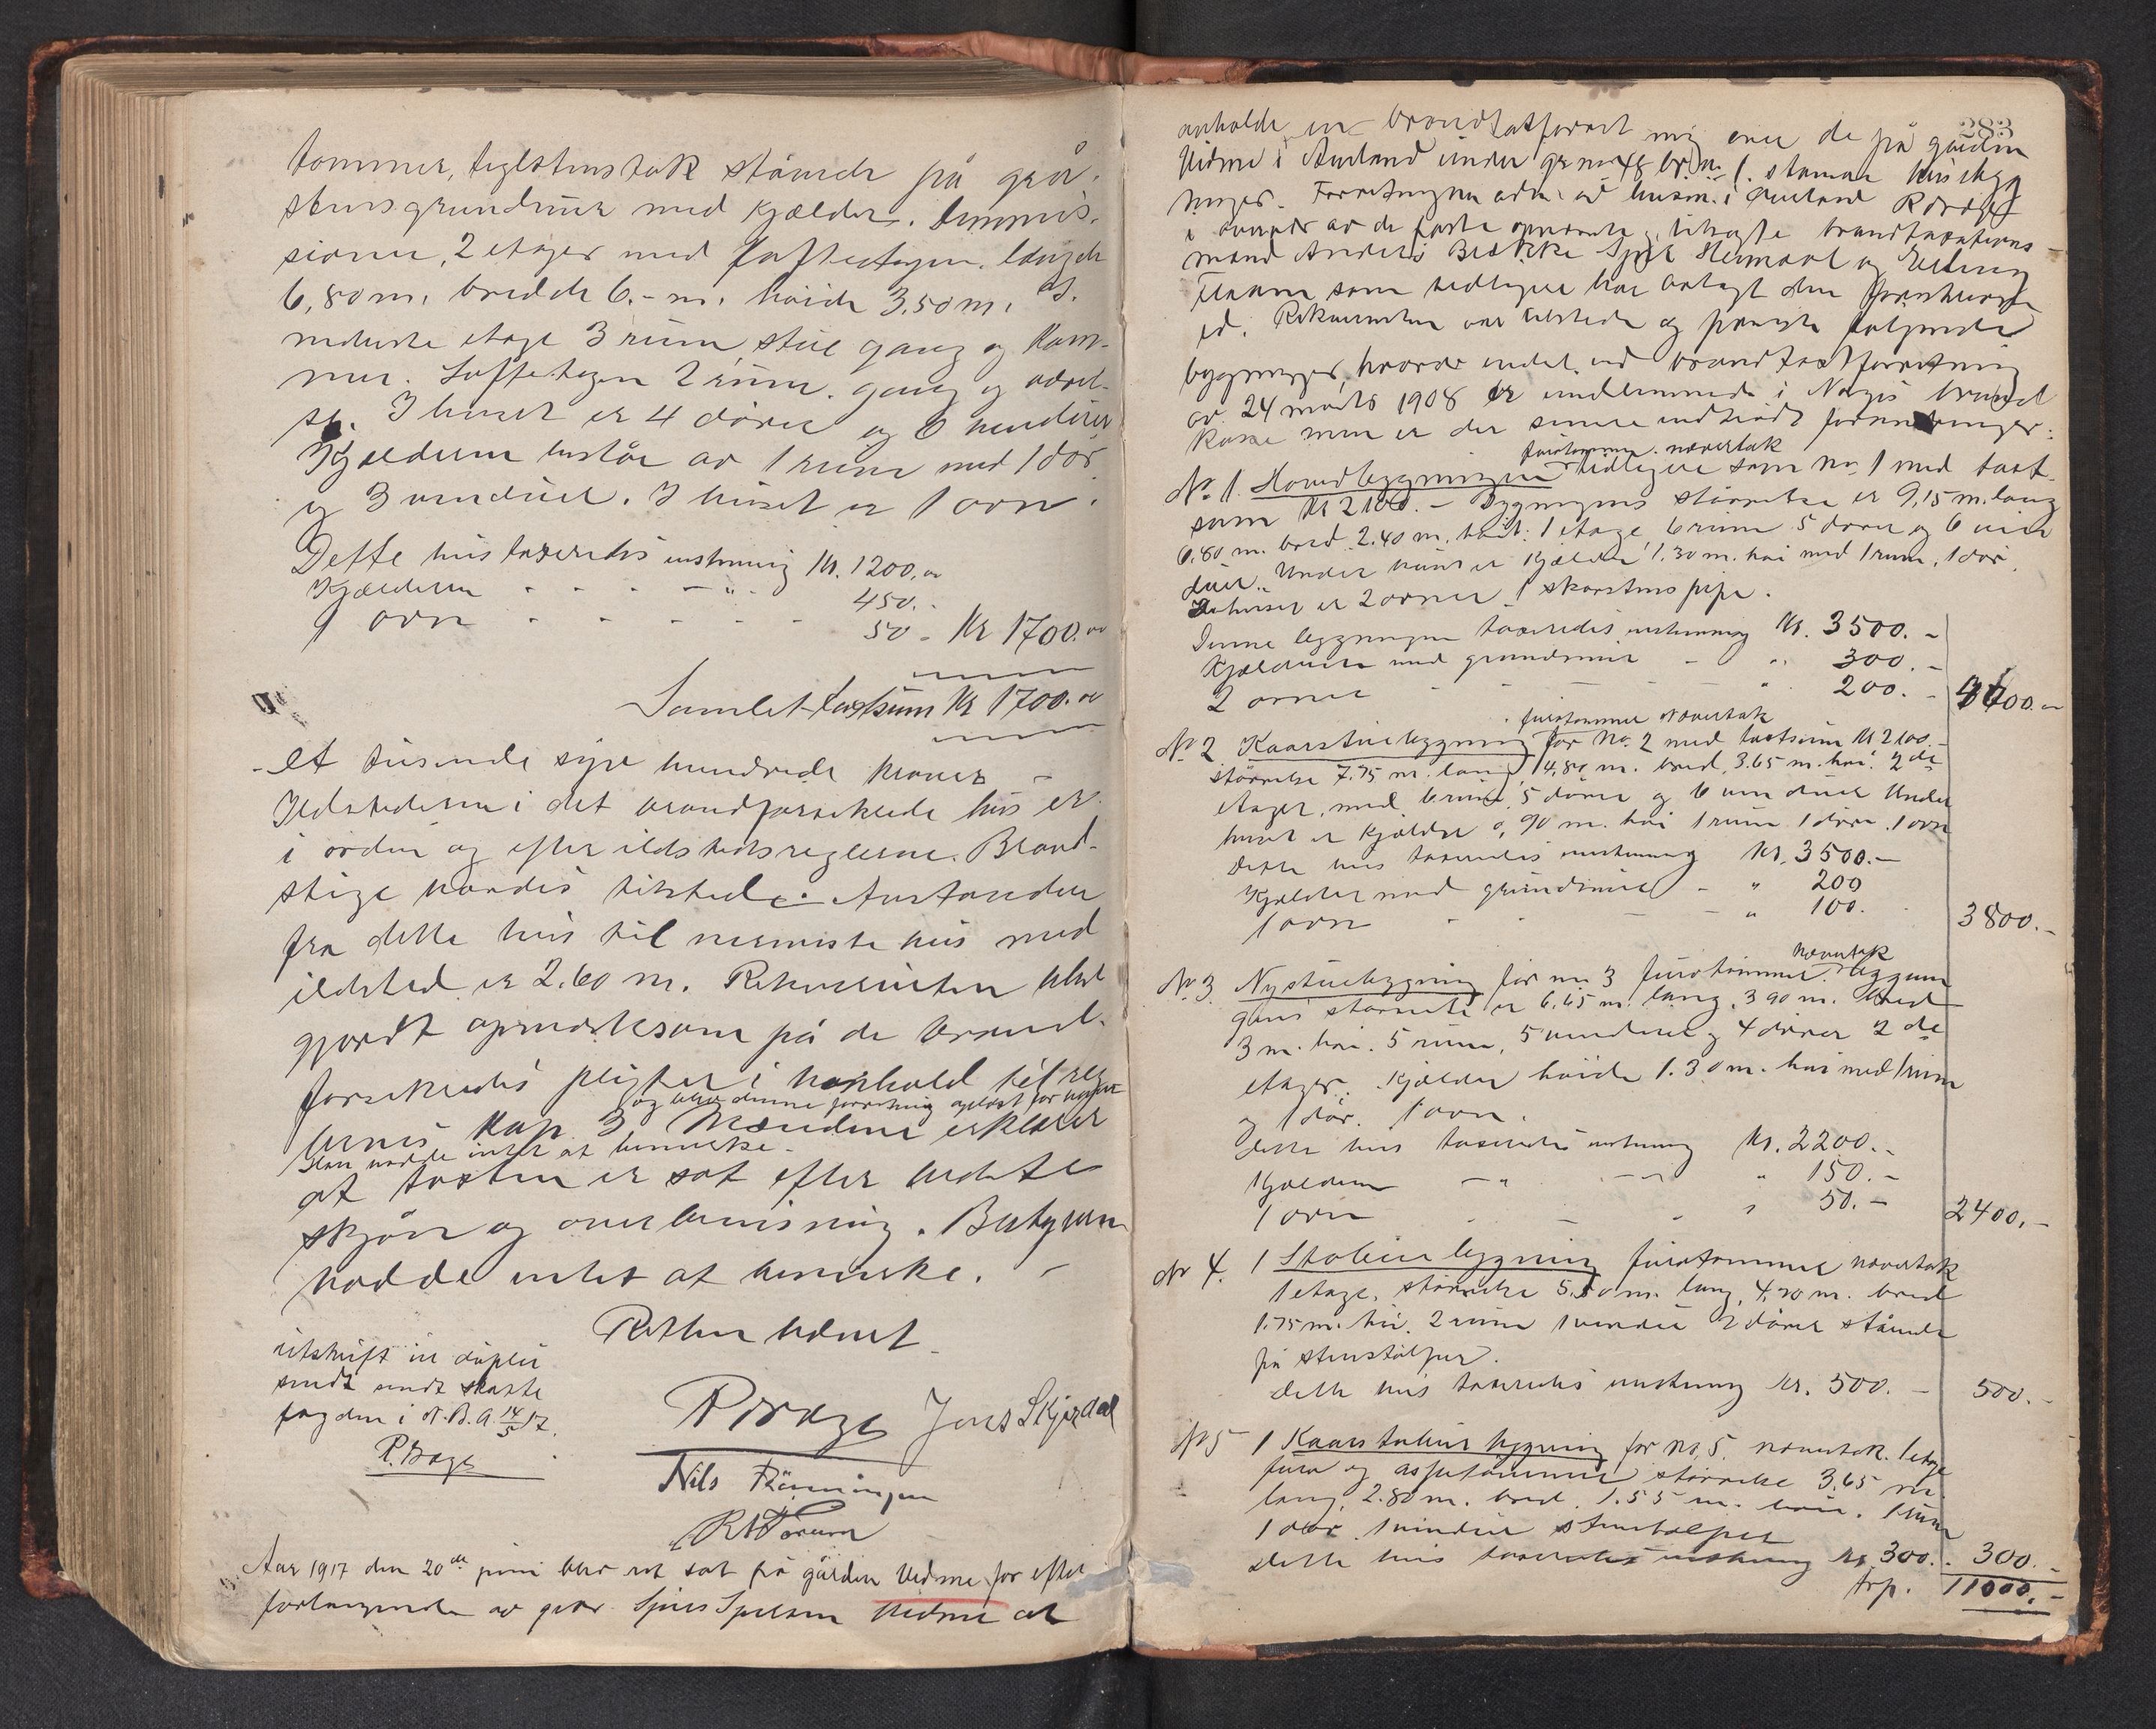 tømmer, teglstenstak stående på grå-
stensgrundmur med kjælder. Dimmis-
sioner, 2 etager med loftsetagen. længde
6,80 m. bredde 6.- m. høide 3,50 m. I
nederste etage 3 rum, stue gang og kam-
mer. Loftetagen 2 rum. gang og værel-
se. I huset er 4 dører og 6 vinduer
Kjælderen består av 1 rum med 1 dør
og 3 vinduer. I huset er 1 ovn.
Dette hus taxeredes enstemmig Kr. 1200,00
Kjælderen - - - - " - 450.-
1 ovn - - - - - 50 - Kr 1700.00
Samlet takstsum Kr 1700.00
- et tusinde syv hundrede kroner -
Ildstederne i det brandforsikrede hus er
i orden og efter ildstedsreglerne. Brand-
stige havdes tilstede. Avstanden
fra dette hus til nærmeste hus med
ildsted er 2.60 m. Rekvirenten blev
gjordt opmerksom på de brand-
forsikredes pligter i henhold til reg-
og blev denne forretning oplæst for
lernes Kap. 3. Mændene erklærer
Han hadde intet at bemerke.
at taxten er sat efter bedste
skjøn og overbevisning. Bestyreren
hadde intet at bemerke. -
Retten hævet.
utskrift in duplo
sendt
fogden i N.B.A. 14/5 17.
R. Brage
R Brage Jens Skjerdal
Nils Rønningen
Aar 1917 den 20de juni blev ret sat på gården Vidme for efter
forlangende av gbr. Sjur Sjursen Vidme at
283
avholde en brandtakstforret ning over de på gården
Vidme i Aurland under gr no 48 br. n. 1. stående husbyg
ninger. Forretningen adm. av lensm. i Aurland R Brage
i nærvær av de faste opnævnte, tiltagte brandtaxations-
mænd Anders
som tidligere har avlagt den foreskrevne
ed. Rekvirenten var tilstede og påviste følgende
bygninger, hvorav endel ved brandtakstforretning
av 24 marts 1908 er indlemmede i Norges brand
kasse men er der senere indtrådt forandringer:
furutømmer nævertak
No 1. Hovedbygningen tidligere som No 1 med takst
sum Kr 2100.- Bygningens størrelse er 9,15 m. lang
6.80 m. bred 2.40 m. høi: 1 etage, 6 rum 5 dører og 6 vin
duer. Under huset er kjælder 1.30 m. høi med 1 rum, 1 dør.
I huset er 2 ovner 1 skorstens pipe.
Denne bygningen taxeredes enstemmig Kr. 3500.-
Kjælderen med grundmur - " 300.-
2 ovner - - - " 200.- 4000.-
furutømmer nævertak
No 2. Kaarstuebygning før No. 2 med takstsum Kr 2100.-
størrelse 7.75 m. lang, 4,80 m. bred, 3.65 m. høi. 2de
etager, med 6 rum, 5 dører og 6 vinduer Under
huset er kjælder 0,90 m. høi 1 rum 1 dør. 1 ovn
Dette hus taxeredes enstemmig Kr. 3500.-
Kjælder med grundmur - " 200
1 ovn - - - " 100. 3800.-
nævertak
No 3. Nystuebygning før no 3 furutømmer. Bygnin
gens størrelse er 6,65 m. lang, 3 90 m. bred
3 m. høi. 5 rum, 5 vinduer og 4 dører 2 de
etager. Kjælder høide 1.30 m. høi med 1 rum
og 1 dør. 1 ovn.
Dette hus taxeredes enstemmig Kr. 2200.-
Kjælderen - " - " 150.-
1 ovn - - - " 50.- 2400.-
No 4. 1 Stabursbygning furutømmer nævertak
1 etage, størrelse 5.50 m. lang, 4,20 m. bred
1.75 m. høi. 2 rum 1 vindu 2 dører stående
på stenstolper.
Dette hus taxeredes enstemmig Kr. 500.- 500.-
No 5 1 Kaarstabursbygning før No. 5. nævertak. 1 etage
furu og aspetømmer størrelse 3,65 m.
lang, 2.80 m. bred, 1.55 m. høi. 1 rum
1 dør 1 vindu stenstolper
Dette hus taxeredes enstemmig Kr 300.- 300.-
trp. 11000.-